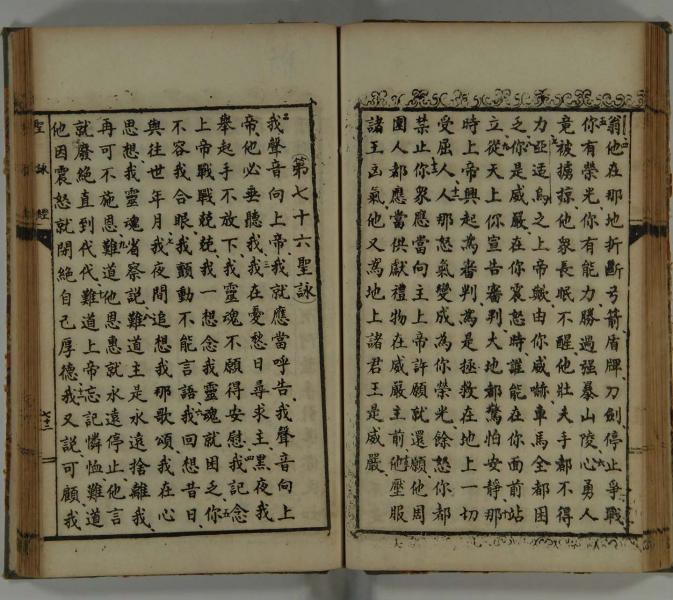 翁他在那地折斷弓箭盾牌刀劍停止爭戰
你有榮光你有能力勝過强暴山陵心勇人
竟被擄掠他衆長眠不醒他壯夫手都不得
力亞迠烏之上帝歟由你威嚇車馬全都困
乏你是威嚴在你震怒時誰能在你面前站
立從天上你宣告審判大地都驚怕安靜那
時上帝興起爲審判爲是拯救在地上一切
受屈人人那怒氣變成爲你榮光餘怒你都
禁止你衆應當向主上帝許願就還願他周
圍人都應當供獻禮物在威嚴主前他壓服
諸王凶氣他又爲地上諸君王是威嚴
第七十六聖詠
我聲音向上帝我就應當呼告我聲音向上
帝他必垂聽我我在憂愁日尋求主黑夜我
舉起手不放下我靈魂不願得安慰我記念
上帝戰戰兢兢我一想念我靈魂就困乏你
不容我合眼我顫動不能言語我回想昔日
與往世年月我夜間追想我那歌頌我在心
思想我靈魂省察説難道主是永遠捨離我
再可不施恩難道他恩惠就永遠停止他言
就廢絶直到代代難道上帝忘記憐恤難道
他因震怒就閉絶自己厚德我又説可顧我
聖詠經
七十三